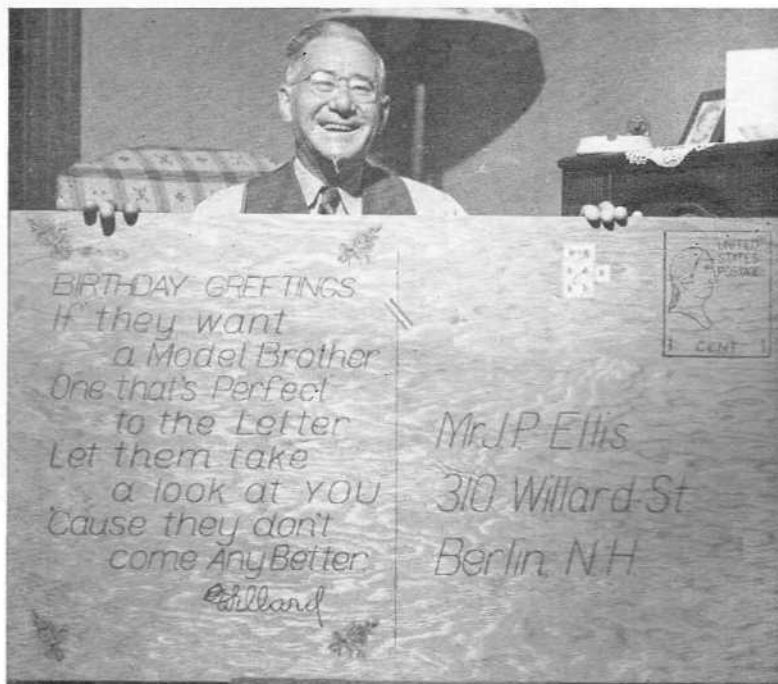 BIRTHDAY GREETINGS
If they want
a Model Brother
One that's Perfect
to the Letter
Let them take
a look at YOU
'Cause they don't
come Any Better
Willard
UNITED
STATES
POSTAGE
1 CENT 1
Mr. J. P. Ellis
310 Willard St
Berlin, N. H.